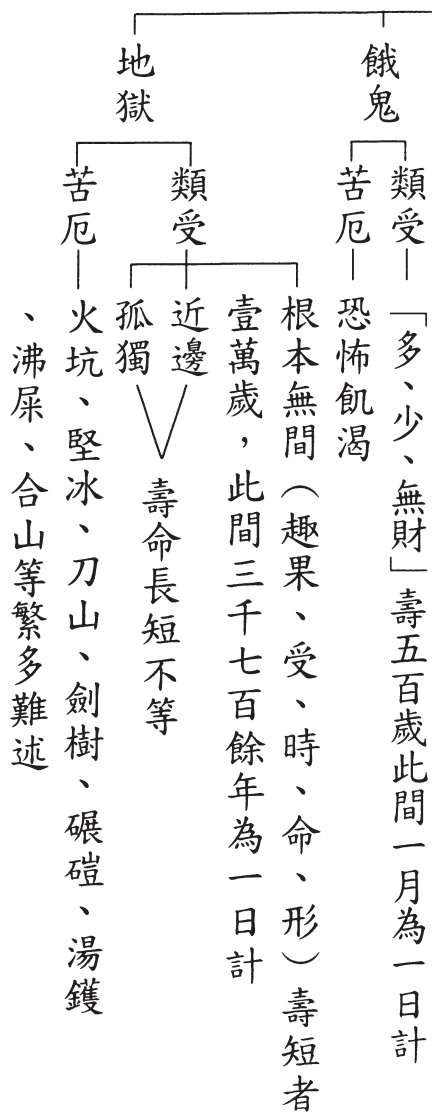 餓鬼
類受
「多、少、無財」壽五百歲此間一月為一日計
苦厄
恐怖飢渴
地獄
類受
根本無間（趣果、受、時、命、形）壽短者
壹萬歲，此間三千七百餘年為一日計
近邊
孤獨
壽命長短不等
苦厄
火坑、堅冰、刀山、劍樹、碾磑、湯鑊
、沸屎、合山等繁多難述